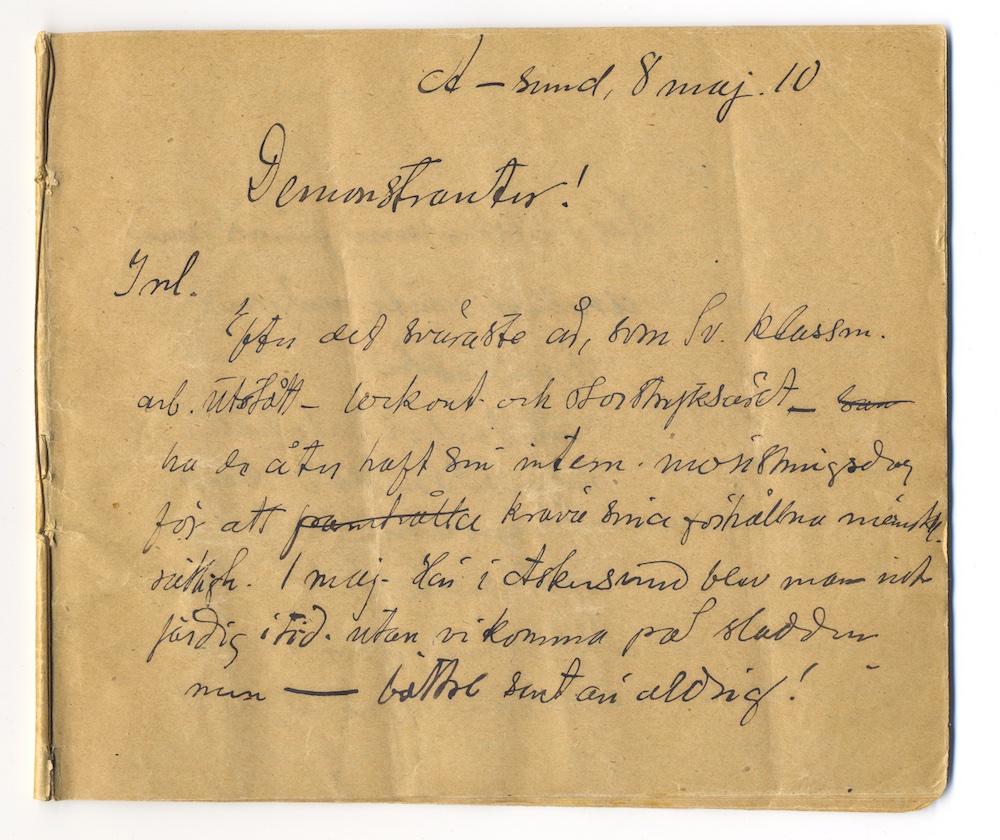 A – sund, 8 maj. 10
Demonstranter!
Inl.
Efter det svåraste år, som Sv. klassm.
arb. utstått – lockout och storstrejksåret –
ha de åter haft sin intern. mönstringsdag
för att kräva sina förhållna mänskl.
rättigh. 1 maj. Här i Askersund blev man icke
färdig i tid. utan vi komma på sladden
men — bättre sent än aldrig!